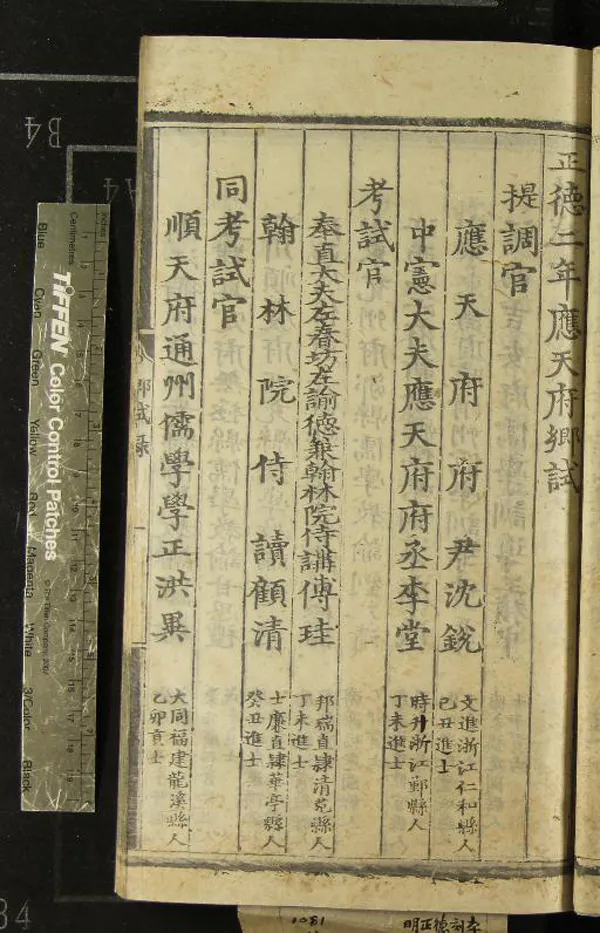 正德二年應天府鄉試
提調官
應天府府尹沈銳
文進浙江仁和縣人
己丑進士
中憲大夫應天府府丞李堂
時升浙江鄞縣人
丁未進士
考試官
奉直大夫左春坊左諭德兼翰林院侍講傅珪
邦瑞直隸清苑縣人
丁未進士
翰林院侍讀顧清
士廉直隸華亭縣人
癸丑進士
同考試官
順天府通州儒學學正洪異
大同福建龍溪縣人
乙卯貢士
鄉試錄
B4
A4
84
inches
Centimetres
TIFFEN Color Control Patches
© The Tiffen Company, 2007
Blue
Cyan
Green
Yellow
Red
Magenta
White
3/Color
Black
1081
明正德刻本